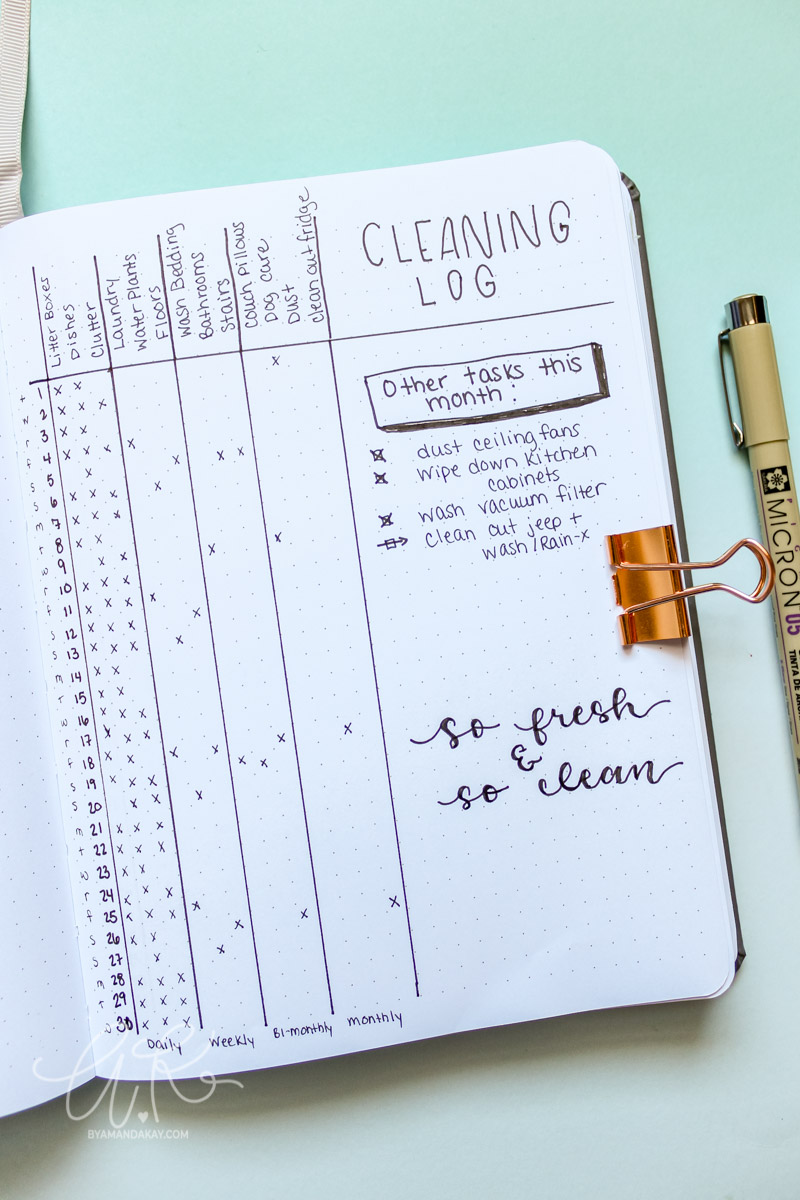 CLEANING
LOG
Litter Boxes
Dishes
Clutter
Laundry
Water Plants
Floors
Wash Bedding
Bathrooms
Stairs
Couch Pillows
Dog care
Dust
Clean out fridge
t 1
w 2
r 3
f 4
s 5
s 6
m 7
t 8
w 9
r 10
f 11
s 12
s 13
m 14
t 15
w 16
r 17
f 18
s 19
s 20
m 21
t 22
w 23
r 24
f 25
s 26
s 27
m 28
t 29
w 30
Daily Weekly Bi-monthly monthly
Other tasks this
month:
dust ceiling fans
wipe down kitchen
cabinets
wash vacuum filter
clean out jeep +
wash/Rain-x
so fresh
&
so clean
MICRON 05
A.K.
BYAMANDAKAY.COM